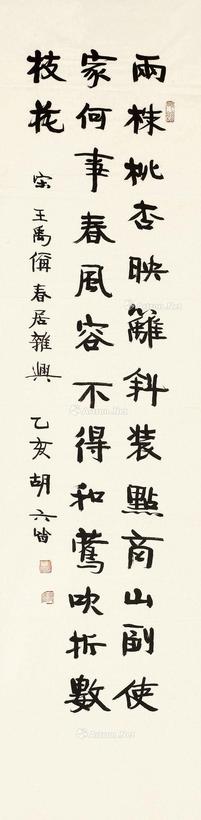 兩株桃杏映籬斜裝點商山副使
家何事春風容不得和鶯吹折數
枝花 宋 王禹偁春居雜興 乙亥 胡六皆